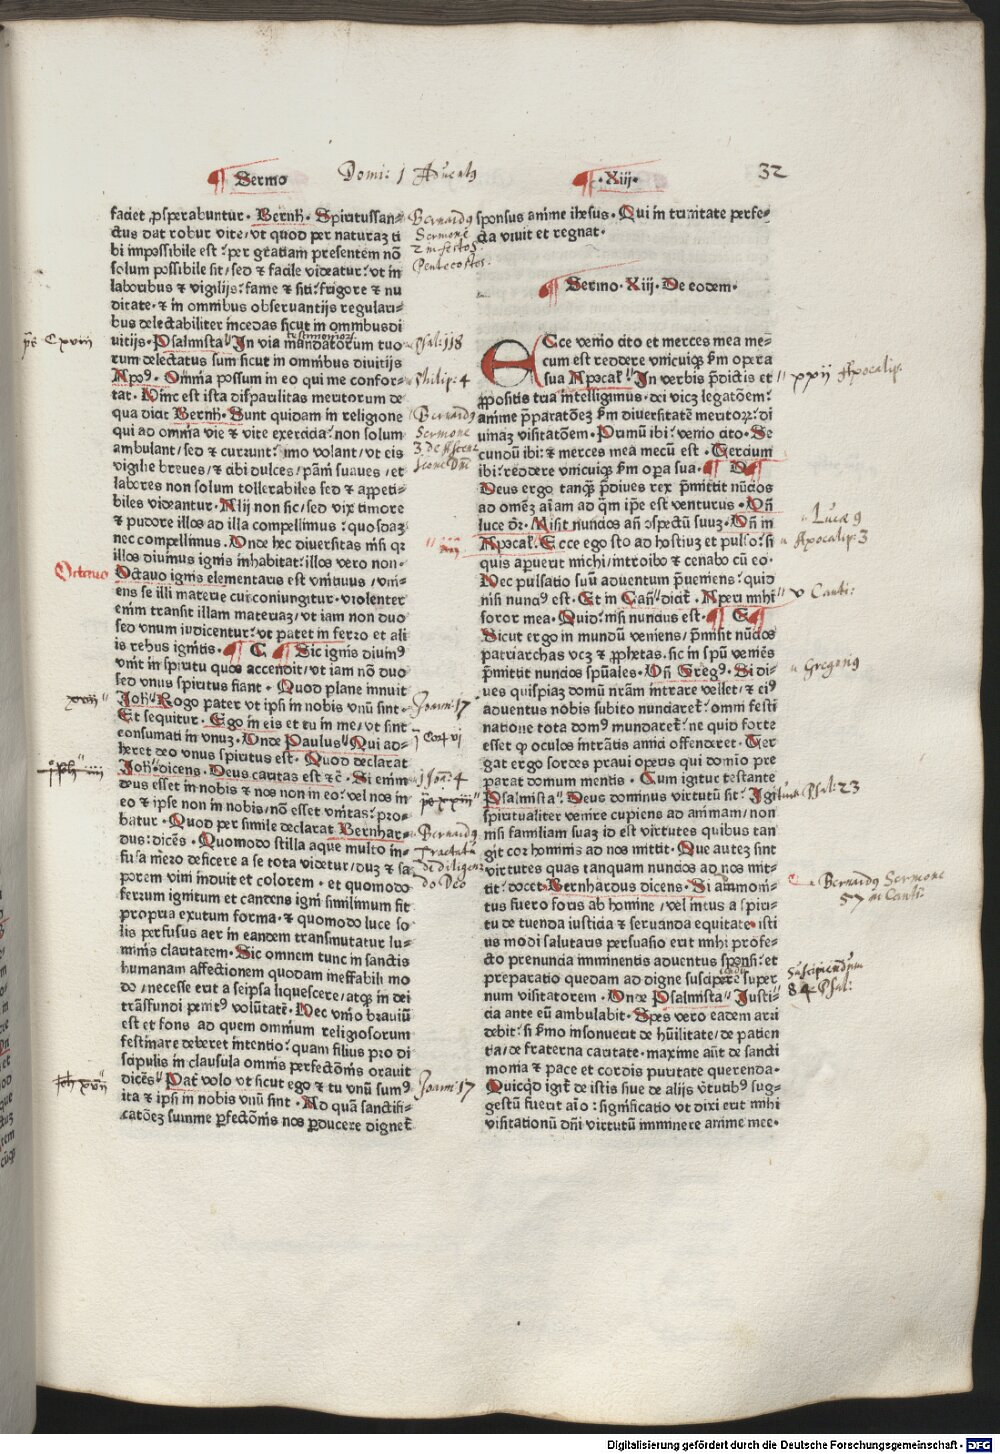 Sermo
Domi: 1 Aduentꝰ
·Xiij·
32
faciet ꝓsperabuntur· Bernh̄· Spiritussan-
ctus dat robur vite/vt quod per naturaꝫ ti
bi impossibile est: per gratiam presentem nō
solum possibile sit/sed ⁊ facile videatur: vt in
laboribus ⁊ vigilijs: fame ⁊ siti: frigore ⁊ nu
ditate· ⁊ in omnibus obseruantijs regulari-
bus delectabiliter incedas sicut in omnibusdi
uitijs· Psalmista" In via mandatorum tuo
rum delectatus sum sicut in omnibus diuitijs
Apoꝰ· Omnia possum in eo qui me confor-
tat· Hinc est ista disparilitas meritorum de
qua dicit Bernh̄· Sunt quidam in religione
qui ad omnia vie ⁊ vite exercicia: non solum
ambulant/sed ⁊ currunt: immo volant/vt eis
vigilie breues/⁊ cibi dulces/pāni suaues/et
labores non solum tollerabiles sed ⁊ appeti-
biles videantur· Alij non sic/sed vix timore
⁊ pudore illos ad illa compellimus: quosdaꝫ
nec compellimus· Onde hec diuersitas nisi qꝛ
illos diuinus ignis inhabitat: illos vero non·
Octauo ignis elementaris est vnitiuus/vni-
ens se illi materie cui coniungitur· violenter
enim transit illam materiaꝫ/vt iam non duo
sed vnum iudicentur: vt patet in ferro et ali
is rebus ignitis· ¶ C ¶ Sic ignis diuinꝰ
vnit in spiritu quos accendit/vt iam nō duo
sed vnus spiritus fiant· Quod plane innuit
Joh̄" Rogo pater vt ipsi in nobis vnū sint·
Et sequitur· Ego in eis et tu in me/vt sint
consumati in vnuꝫ· Onde Paulus" Qui ad-
heret deo vnus spiritus est· Quod declarat
Joh̄· dicens· Deus caritas est ⁊ē· Si enim
deus esset in nobis ⁊ nos non in eo: vel nos in
eo ⁊ ipse non in nobis/nō esset vnitas: pro-
batur· Quod per simile declarat Bernhar-
dus: dicēs· Quomodo stilla aque multo in-
fusa mero deficere a se tota videtur/duꝫ ⁊ sa
porem vini induit et colorem· et quomodo
ferrum ignitum et candens igni simillimum fit
propria exutum forma· ⁊ quomodo luce so
lis perfusus aer in eandem transmutatur lu-
minis claritatem· Sic omnem tunc in sanctis
humanam affectionem quodam ineffabili mo
do/necesse erit a seipsa liquescere/atqꝫ in dei
trāsfundi penitꝰ volūtatē· Nec vnio brauiū
est et fons ad quem omnium religiosorum
festinare deberet intentio: quam filius pro di
scipulis in clausula omnis perfectōnis orauit
dicēs" Pat̄ volo vt sicut ego ⁊ tu vnū sumꝰ
ita ⁊ ipsi in nobis vnū sint· Ad quā sanctifi-
catōeꝫ summe ꝑfectōnis nos ꝑducere dignet̄
sponsus anime ihesus· Qui in trinitate perfe-
cta viuit et regnat·
Sermo· Xiij· De eodem·
ECce venio cito et merces mea me-
cum est reddere vnicuiqꝫ ẜm opera
sua Apocal̄" In verbis p̄dictis et
ꝓpositis tria intelligimus· dei viꝫ legatōem:
anime p̄paratōeꝫ ẜm diuersitatē meritoꝝ: di
uinaꝫ visitatōem· Primū ibi: venio cito· Se
cundū ibi: ⁊ merces mea mecū est· Tercium
ibi: reddere vnicuiqꝫ ẜm opa sua· ¶ D ¶
Deus ergo tanqꝫ p̄diues rex p̄mittit nūcios
ad omēꝫ aīam ad q̄m ip̄e est venturus· Oñ
luce ōr· Misit nuncios añ ɔspectū suuꝫ· Oñ in
Apocal̄· Ecce ego sto ad hostiuꝫ et pulso: si
quis aperuerit michi/introibo ⁊ cenabo cū eo·
Nec pulsatio suū aduentum p̄ueniens: quid
nisi nunciꝰ est· Et in Cañ" dicit̄· Aperi mihi
soror mea· Quid: nisi nuncius est· ¶ E ¶
Sicut ergo in mundū veniens/p̄misit nūcios
patriarchas vcꝫ ⁊ ꝓphetas· sic in spū veniēs
p̄mittit nuncios spūales· Oñ Gregꝰ· Si di-
ues quispiaꝫ domū nr̄am intrare vellet/⁊ eiꝰ
aduentus nobis subito nunciaret̄: omni festi
natione tota domꝰ mundaret̄: ne quid forte
esset qꝫ oculos intrātis amici offenderet· Ter
gat ergo sordes praui operis qui domio pre
parat domum mentis· Cum igitur testante
Psalmista" Deus dominus virtutū sit: Igit
spiritualiter venire cupiens ad animam/non
nisi familiam suaꝫ id est virtutes quibus tan
git cor hominis ad nos mittit· Que auteꝫ sint
virtutes quas tanquam nuncios ad nos mit-
tit: docet Bernhardus dicens· Si ammoni-
tus fuero foris ab homine/vel intus a spiri-
tu de tuenda iusticia ⁊ seruanda equitate· isti
us modi salutaris persuasio erit mihi profe-
cto prenuncia imminentis aduentus sponsi: et
preparatio quedam ad digne suscipere super
num visitatorem· Onde Psalmista" Justi-
cia ante eū ambulabit· Spes vero eadem arri
debit: si ẜmo insonuerit de hūilitate/de patien
tia/de fraterna caritate· maxime aūt de sancti
monia ⁊ pace et cordis puritate querenda·
Quicqd igit̄ de istis siue de alijs v̄tutibꝰ sug-
gestū fuerit aīo: significatio vt dixi erit mihi
visitationū dñi virtutū imminere anime mee·
Bernardꝰ
Sermone
2 in festos
Pentecostes·
ps̄ Cxviii
testimonioꝝ
Psal: 118
Philip: 4
Bernardꝰ
Sermone
3 de Ascen
sione Dnī
Octauo
xvii"
Joan: 17
j Cor vi
iph̄" iiii
j Joā: 4
ps xxiii"
Bernardꝰ
tractatu
de diligen
do Deo
Joh xvii
Joan: 17
xxii Apocalip:
Lucæ 9
Apocalip: 3
v Canti:
Gregoriꝰ
Psal: 23
Bernardꝰ Sermone
57 in Canti
Suscipiendum
84 Psal:
Digitalisierung gefördert durch die Deutsche Forschungsgemeinschaft - DFG